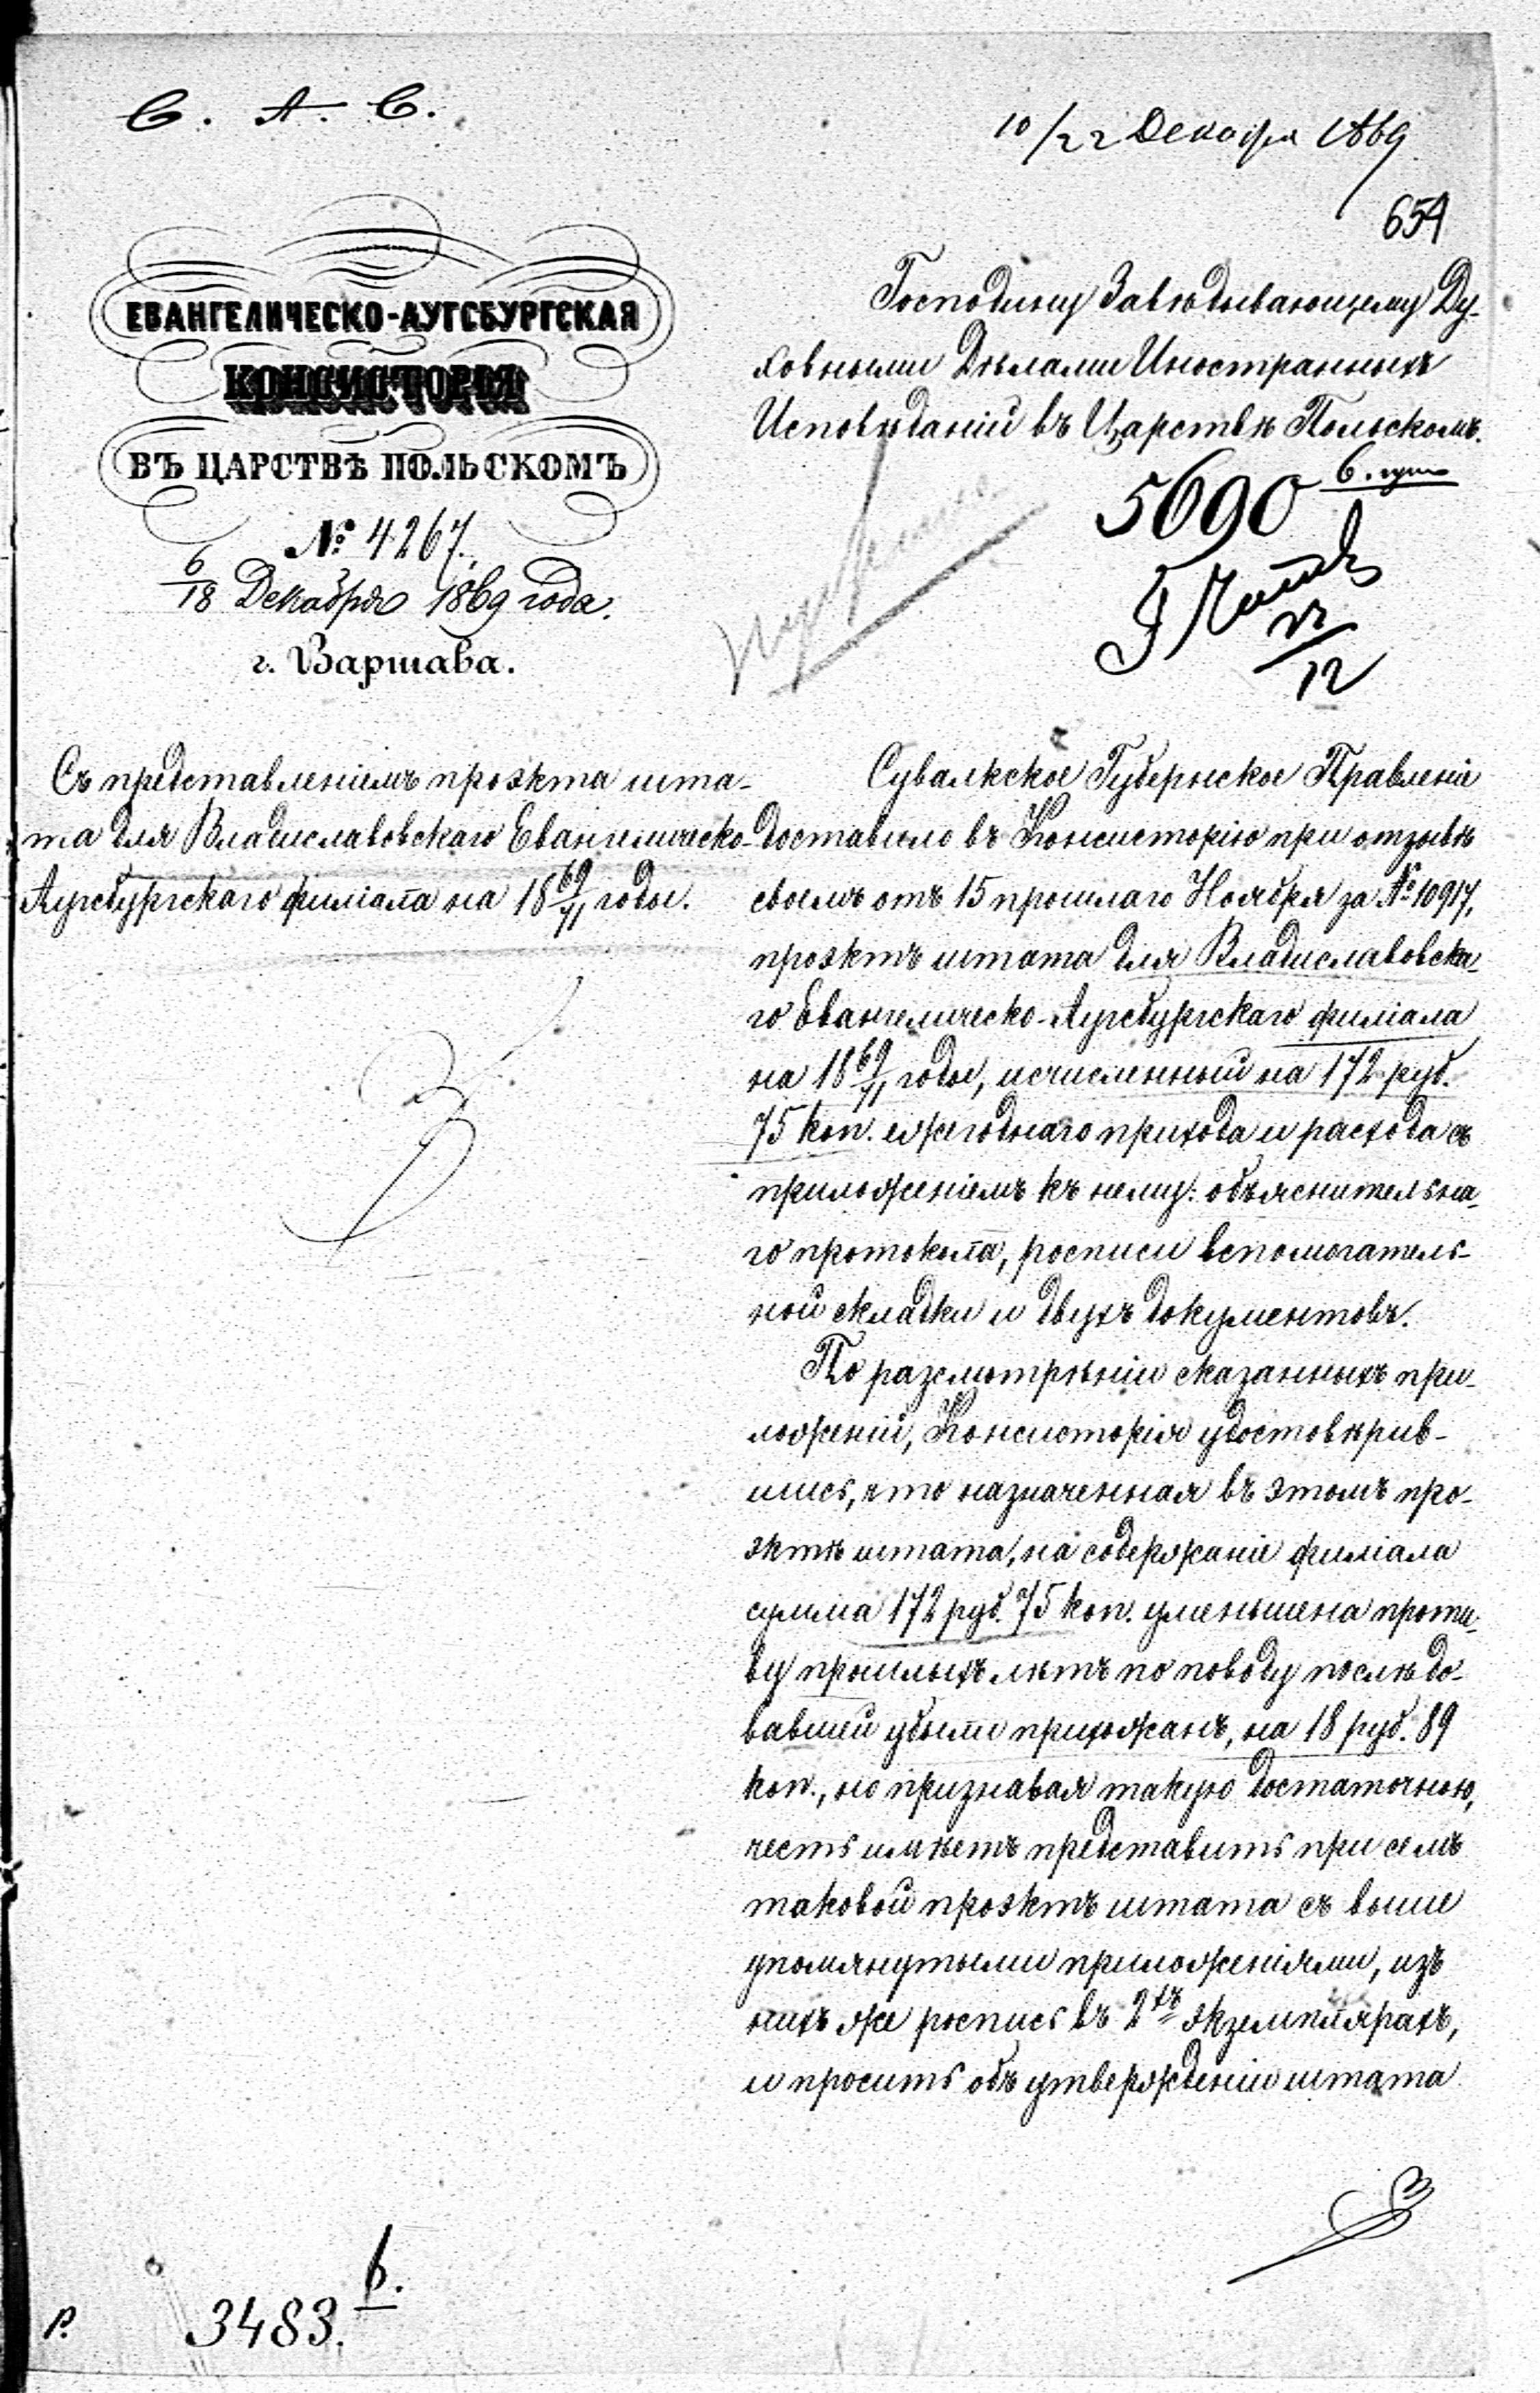 С. А. С.
10/22 Декабря 1869
654
ЕВАНГЕЛИЧЕСКО-АУГСБУРГСКАЯ
КОНСИСТОРІЯ
ВЪ ЦАРСТВѢ ПОЛЬСКОМЪ
№ 4267.
6/18 Декабря 1869 года.
г. Варшава.
Господину Завѣдывающему Ду-
ховными Дѣлами Иностранныхъ
Исповѣданій въ Царствѣ Польскомъ.
5690
12
Съ представленіемъ проэкта шта-
та для Владиславовскаго Евангелическо-
Аугсбургскаго филіала на 1869/71 годы.
Сувалкское Губернское Правленіе
доставило въ Консисторію при отзывѣ
своемъ отъ 15 прошлаго Ноября за № 10917,
проэктъ штата для Владиславовска-
го Евангелическо-Аугсбургскаго филіала
на 1869/71 годы, исчисленный на 172 руб.
75 коп. ежегоднаго прихода и расхода съ
приложеніемъ къ нему: объяснительна-
го протокола, росписи вспомогатель-
ной складки и двухъ документовъ.
По разсмотрѣніи сказанныхъ при-
ложеній, Консисторія удостовѣрив-
шись, что назначенная въ этомъ про-
эктѣ штата, на содержаніе филіала
сумма 172 руб. 75 коп. уменьшена проти-
ву прошлыхъ лѣтъ по поводу послѣдо-
вавшей убыли прихожанъ, на 18 руб. 89
коп., но признавая такую достаточною,
честь имѣетъ представить при семъ
таковой проэктъ штата съ выше
упомянутыми приложеніями, изъ
нихъ же роспись въ 2хъ экземплярахъ,
и просить объ утвержденіи штата
Р. 3483. 6.